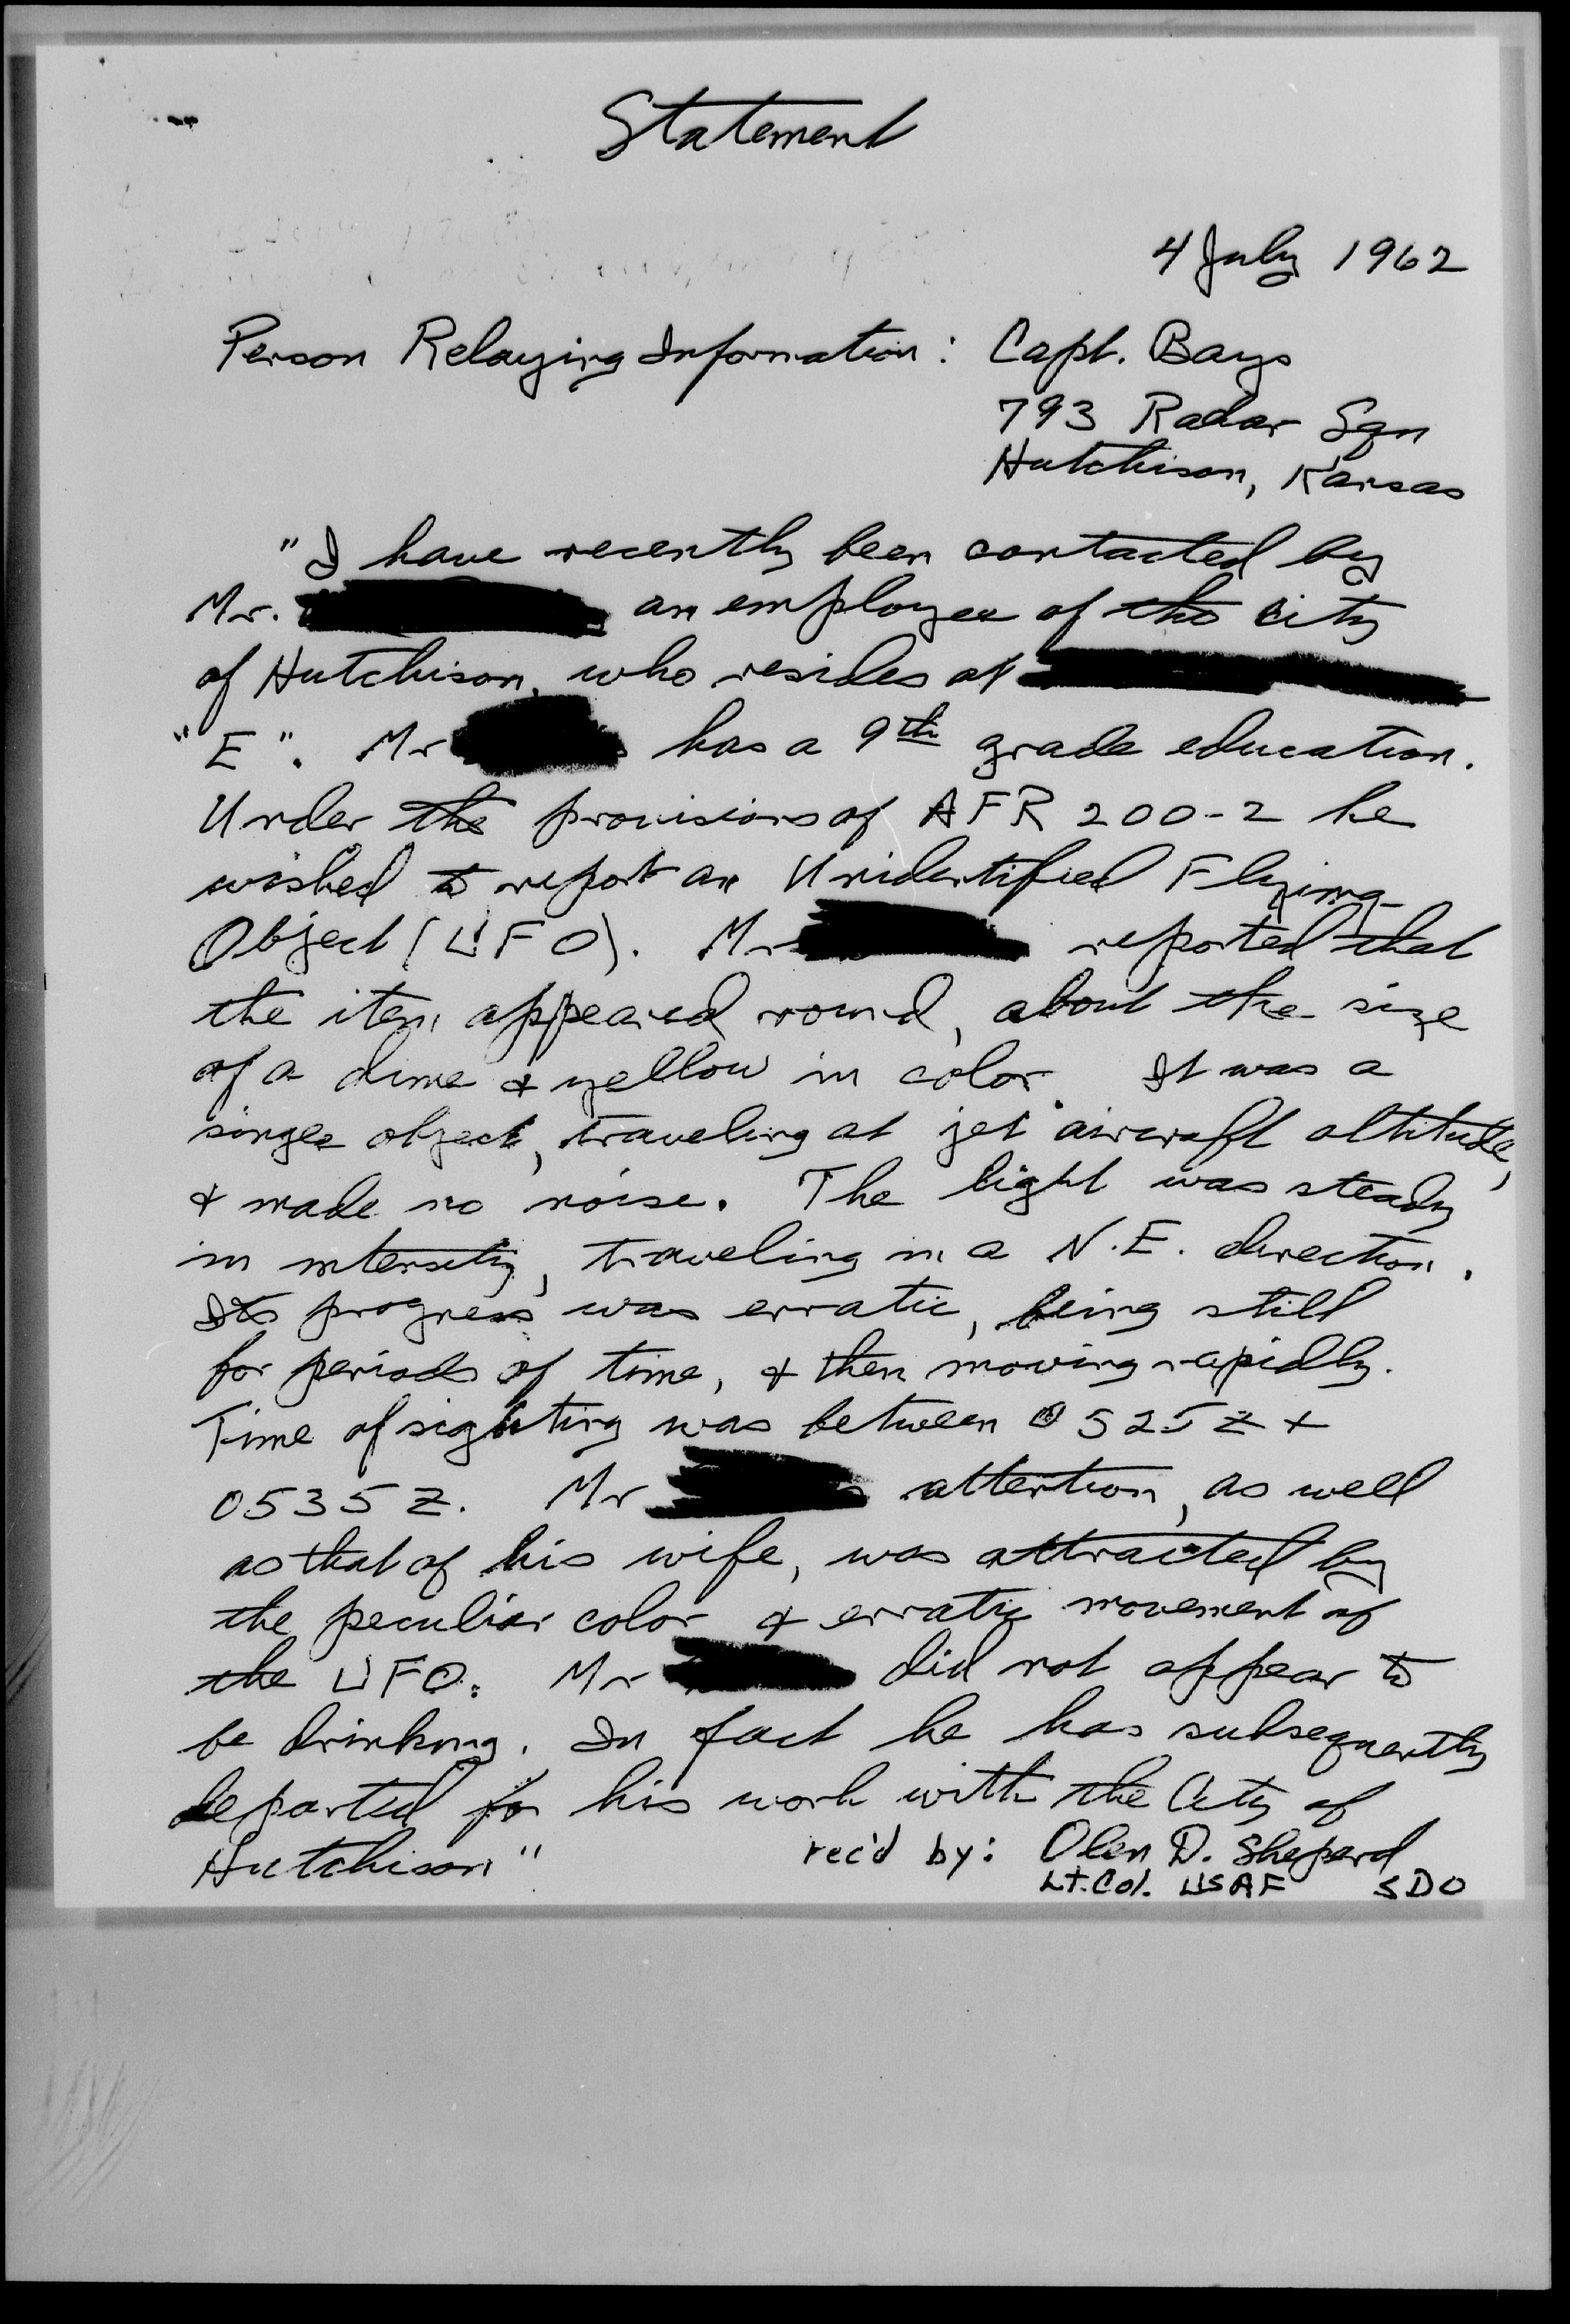 Statement
4 July 1962
Person Relaying Information : Capt. Bays
793 Radar Sqn
Hutchison, Kansas
"I have recently been contacted by
Mr. an employee of the city
of Hutchison, who resides at
"E". Mr has a 9th grade education.
Under the provisions of AFR 200-2 he
wished to report an Unidentified Flying
Object (UFO). Mr reported that
the item appeared round, about the size
of a dime & yellow in color. It was a
single object, traveling at jet aircraft altitude,
& made no noise. The light was steady
in intensity, traveling in a N.E. direction.
Its progress was erratic, being still
for periods of time, & then moving rapidly.
Time of sighting was between 0525Z +
0535Z. Mr attention, as well
as that of his wife, was attracted by
the peculiar color & erratic movement of
the UFO. Mr did not appear to
be drinking. In fact he has subsequently
departed for his work with the City of
Hutchison"
rec'd by: Olen D. Sheperd
Lt. Col. USAF SDO